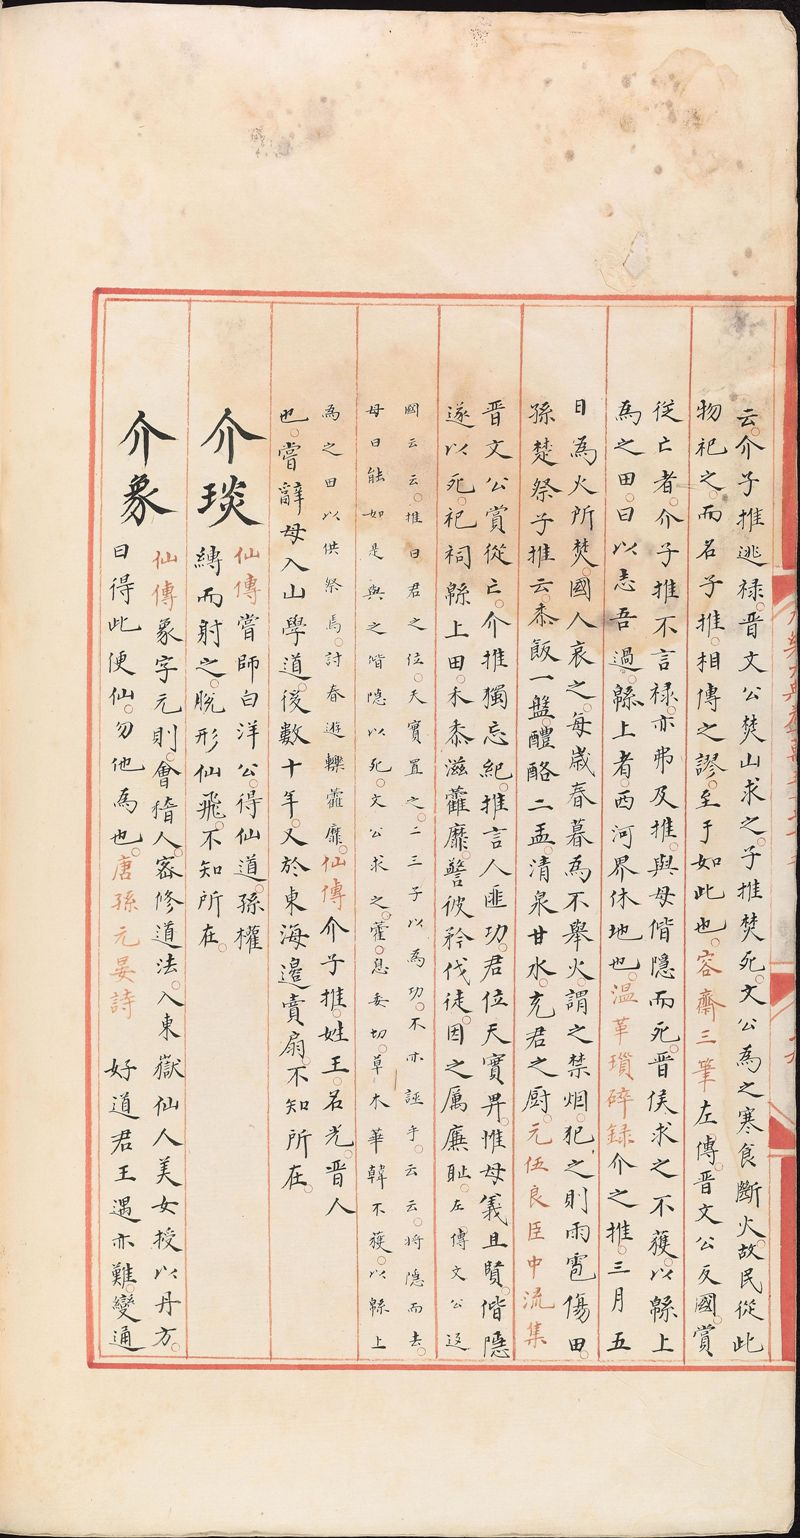 云。介子推逃禄。晋文公焚山求之。子推焚死。文公為之寒食斷火。故民從此
物祀之。而名子推。相傳之謬。至于如此也。容齋三筆 左傳。晋文公反國。賞
從亡者。介子推不言禄。亦弗及推。與母偕隐而死。晋侯求之不獲。以緜上
為之田。曰以志吾過。緜上者。西河界休地也。温革瑣碎録介之推。三月五
日為火所焚。國人哀之。每歲春暮為不舉火。謂之禁烟。犯之則雨雹傷田。
孫楚祭子推云。黍飯一盤。醴酪二盂。清泉甘水。充君之厨。元伍良臣中流集
晋文公賞從亡。介推獨忘紀。推言人匪功。君位天實畀。惟母義且賢。偕隱
遂以死。祀祠緜上田。禾黍滋藿靡。警彼矜伐徒。因之厲廉耻。左傳文公返
國云云。推曰君之位。天實置之。二三子以為功。不亦誣乎。云云。将隐而去。
母曰能如是與之偕隐以死。文公求之。藿。息委切。草木華韓不獲。以緜上
為之田以供祭焉。討春遊轢藿靡。仙傳介子推。姓王。名光。晋人
也。嘗辭母入山學道。後數十年。又於東海邉賣扇。不知所在。
介琰 仙傳嘗師白洋公。得仙道。孫權
縛而射之。脱形仙飛。不知所在。
介象 仙傳象字元則。會稽人。密修道法。入東嶽仙人美女授以丹方。
曰得此便仙。勿他為也。唐孫元晏詩 好道君王遇亦難。變通